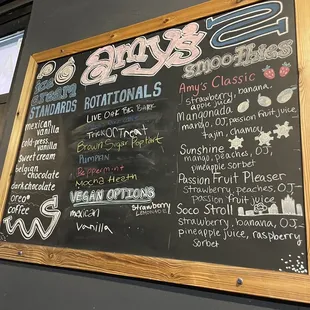 amy's
ice
cream
STANDARDS
mexican
vanilla
cold-press
vanilla
Sweet cream
belgian
chocolate
dark chocolate
oreo
Coffee
ROTATIONALS
LIVE OAK
Trick Or Treat
Brown Sugar Poptart
PUMPKIN
PEPPERMINT
VEGAN OPTIONS
mexican
Vanilla
Strawberry
LEMONADE
smoothies
Amy's Classic
strawberry, banana,
apple juice
Mangonada
mango, OJ, passion fruit,
tajin, chamoy
Sunshine
mango, peaches, OJ,
pineapple sorbet
Passion Fruit Pleaser
Strawberry, peaches, OJ
passion fruit
Soco Stroll
strawberry, banana, OJ
pineapple juice, raspberry
sorbet